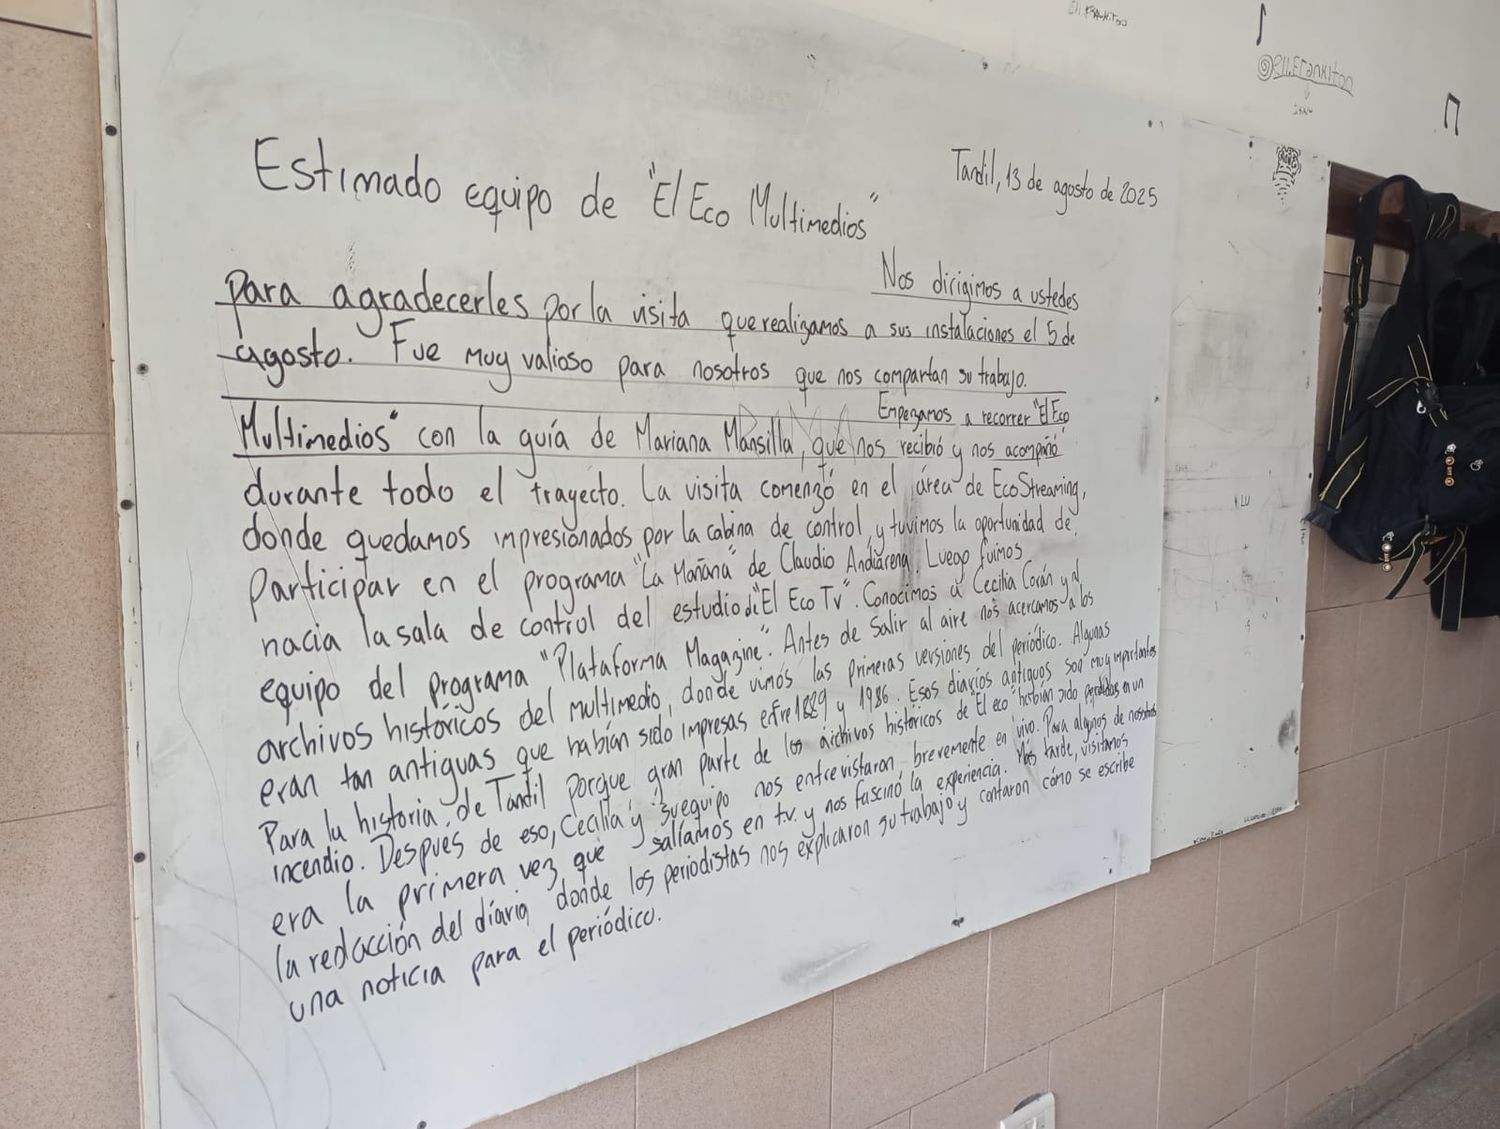 Tandil, 13 de agosto de 2025
Estimado equipo de "El Eco Multimedios"
Nos dirigimos a ustedes
para agradecerles por la visita que realizamos a sus instalaciones el 5 de
agosto. Fue muy valioso para nosotros que nos compartan su trabajo.
Empezamos a recorrer "El Eco
Multimedios" con la guía de Mariana Mansilla, que nos recibió y nos acompañó
durante todo el trayecto. La visita comenzó en el área de EcoStreaming,
donde quedamos impresionados por la cabina de control, y tuvimos la oportunidad de
participar en el programa "La Mañana" de Claudio Andiarena. Luego fuimos
hacia la sala de control del estudio de "El Eco Tv". Conocimos a Cecilia Corán y al
equipo del programa "Plataforma Magazine". Antes de salir al aire nos acercamos a los
archivos históricos del multimedio, donde vimos las primeras versiones del periódico. Algunas
eran tan antiguas que habían sido impresas entre 1889 y 1986. Esos diarios antiguos son muy importantes
Para la historia de Tandil porque gran parte de los archivos históricos de "El eco" habían sido perdidos en un
incendio. Después de eso, Cecilia y su equipo nos entrevistaron brevemente en vivo. Para algunos de nosotros
era la primera vez que salíamos en tv. y nos fascinó la experiencia. Más tarde, visitamos
la redacción del diario, donde los periodistas nos explicaron su trabajo y contaron cómo se escribe
una noticia para el periódico.
Ell.FRANKITOO
@ell.Frankiton
LU